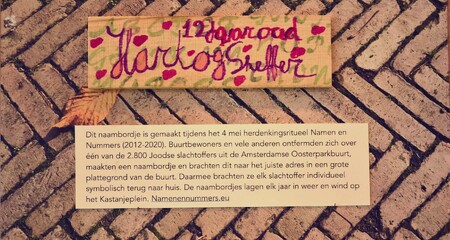 12 Jaar oud
Hartog Sheffer
Dit naambordje is gemaakt tijdens het 4 mei herdenkingsritueel Namen en
Nummers (2012-2020). Buurtbewoners en vele anderen ontfermden zich over
één van de 2.800 Joodse slachtoffers uit de Amsterdamse Oosterparkbuurt,
maakten een naambordje en brachten dit naar het juiste adres in een grote
plattegrond van de buurt. Daarmee brachten ze elk slachtoffer individueel
symbolisch terug naar huis. De naambordjes lagen elk jaar in weer en wind op
het Kastanjeplein. Namenennummers.eu